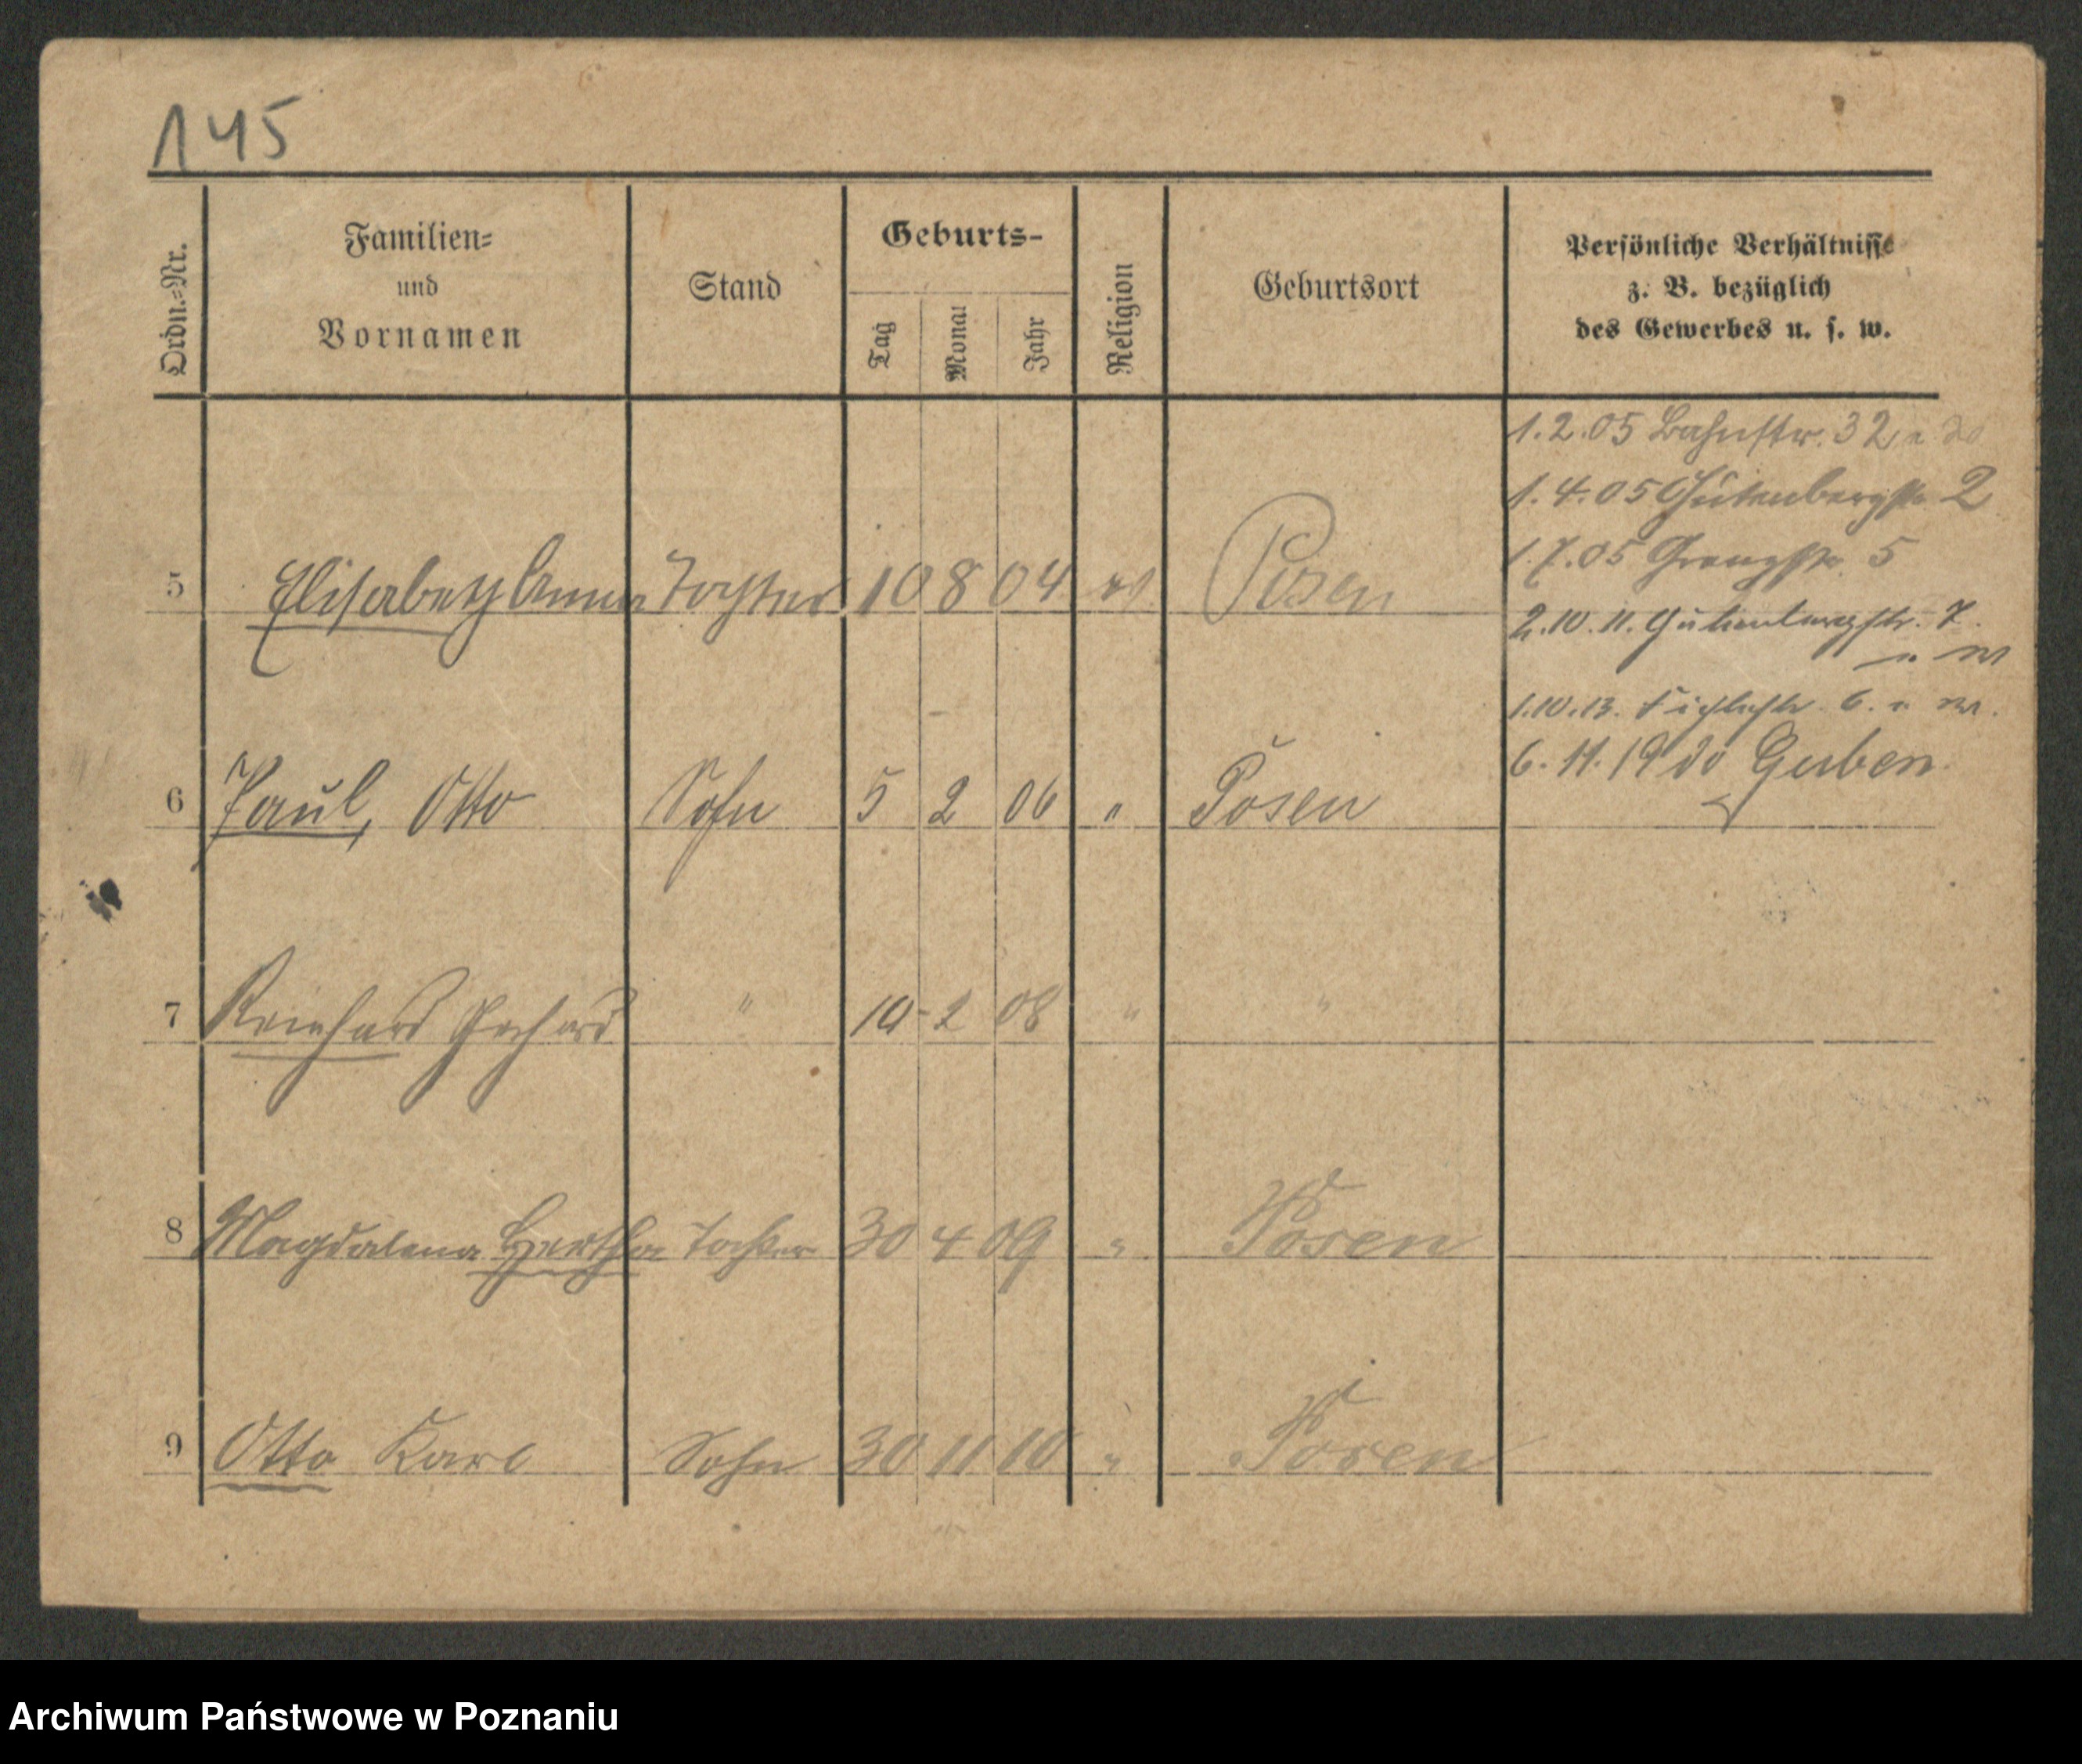 145
Ordn.=Nr.
Familien=
und
Vornamen
Stand
Geburts-
Tag
Monat
Jahr
Religion
Geburtsort
Persönliche Verhältnisse
z. B. bezüglich
des Gewerbes u. s. w.
1.2.05 Bahnstr. 32
1.4.05 Gutenbergstr 2
1.7.05 Grenzstr. 5
5 Elisabeth Anna Tochter 10 8 04 ev Posen
2.10.11. Gutenbergstr. 7.
1.10.13. 6.
6.11.19 Guben
6 Paul, Otto Sohn 5 2 06 " Posen
7 Reinhard Gerhard " 10 2 08 " "
8 Magdalena Hertha Tochter 30 4 09 " Posen
9 Otto Karl Sohn 30 11 10 " Posen
Archiwum Państwowe w Poznaniu